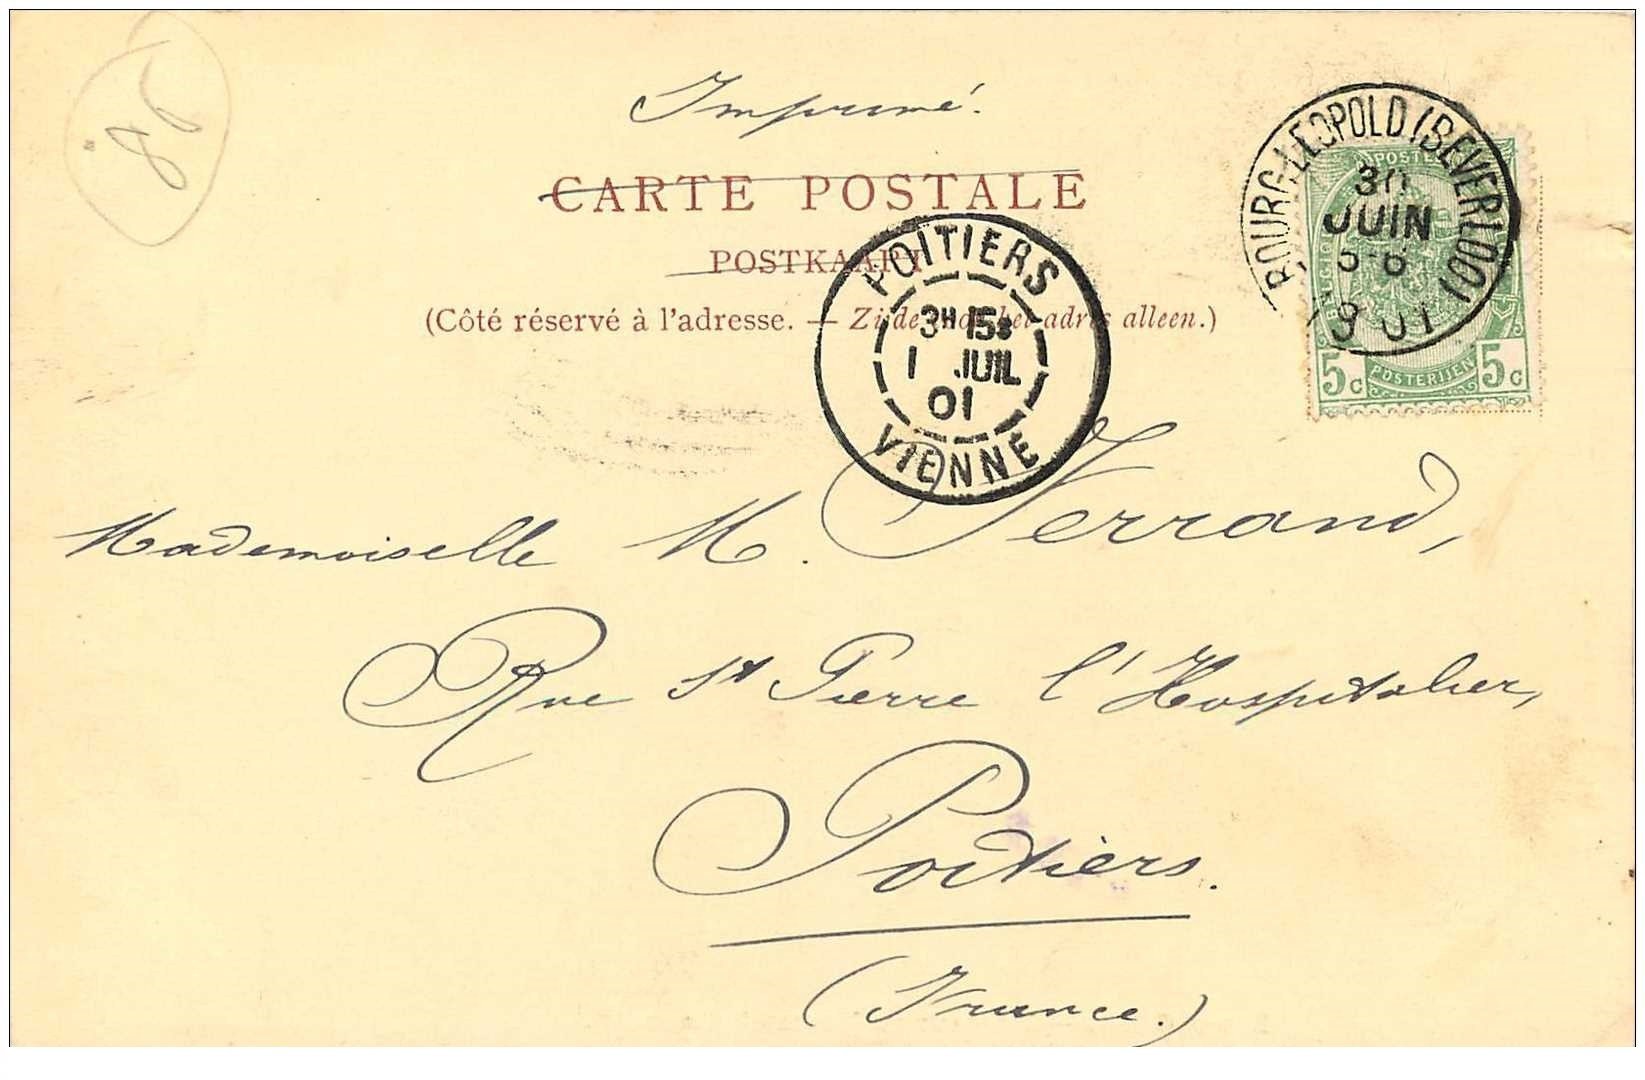 86
Imprimé.
CARTE POSTALE
POSTKAART
(Côté réservé à l'adresse. — Zijde voor het adres alleen.)
BOURG-LEOPOLD (BEVERLOO)
30
JUIN
5-6
1901
POSTES
BELGIQUE
5c POSTERIJEN 5c
POITIERS
3H 15S
1 JUIL
01
VIENNE
Mademoiselle M. Ferrand,
Rue St Pierre l'Hospitalier,
Poitiers.
(France.)